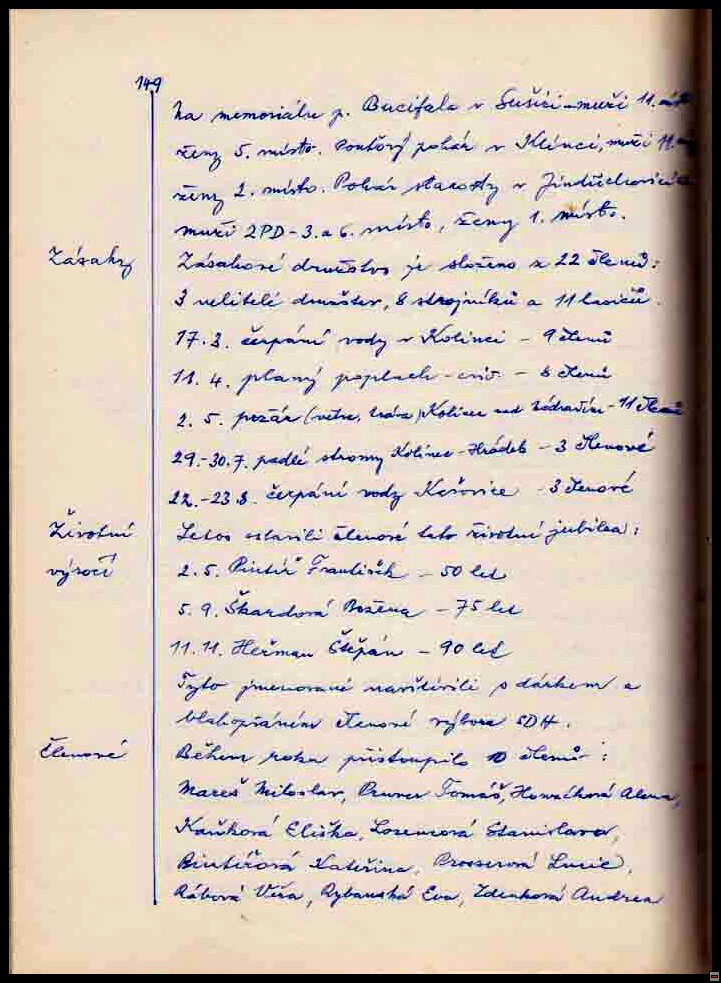 149
Na memoriálu p. Bucifala v Sušici - muži 11.
ženy 5. místo. Pouťový pohár v Klínci, muži 11.
ženy 2. místo. Pohár starosty v Jindřichovicích
muži 2PD - 3. a 6. místo, ženy 1. místo.
Zásahy
Zásahové družstvo je složeno z 22 členů:
3 velitelé družstev, 8 strojníků a 11 hasičů.
17.3. čerpání vody v Kolinci - 9 členů
11. 4. planý poplach - cvič. - 6 členů
2. 5. požár (vetve, tráva) Kolinec nad nádražím - 11 členů
29.-30.7. padlé stromy Kolinec-Hrádek - 3 členové
22.-23.8. čerpání vody Kašovice - 3 členové
Životní
výročí
Letos oslavili členové tato životní jubilea:
2. 5. Pintíř František - 50 let
5. 9. Škardová Božena - 75 let
11. 11. Heřman Štěpán - 90 let
Tyto jmenované navštívili s dárkem a
blahopřáním členové výboru SDH.
Členové
Během roku přistoupilo 10 členů:
Mareš Miloslav, Pruner Tomáš, Alena,
Kaňková Eliška, Stanislava,
Pintířová Kateřina, Prosserová Lucie,
Rábová Věra, Rybanská Eva, Zdeňková Andrea